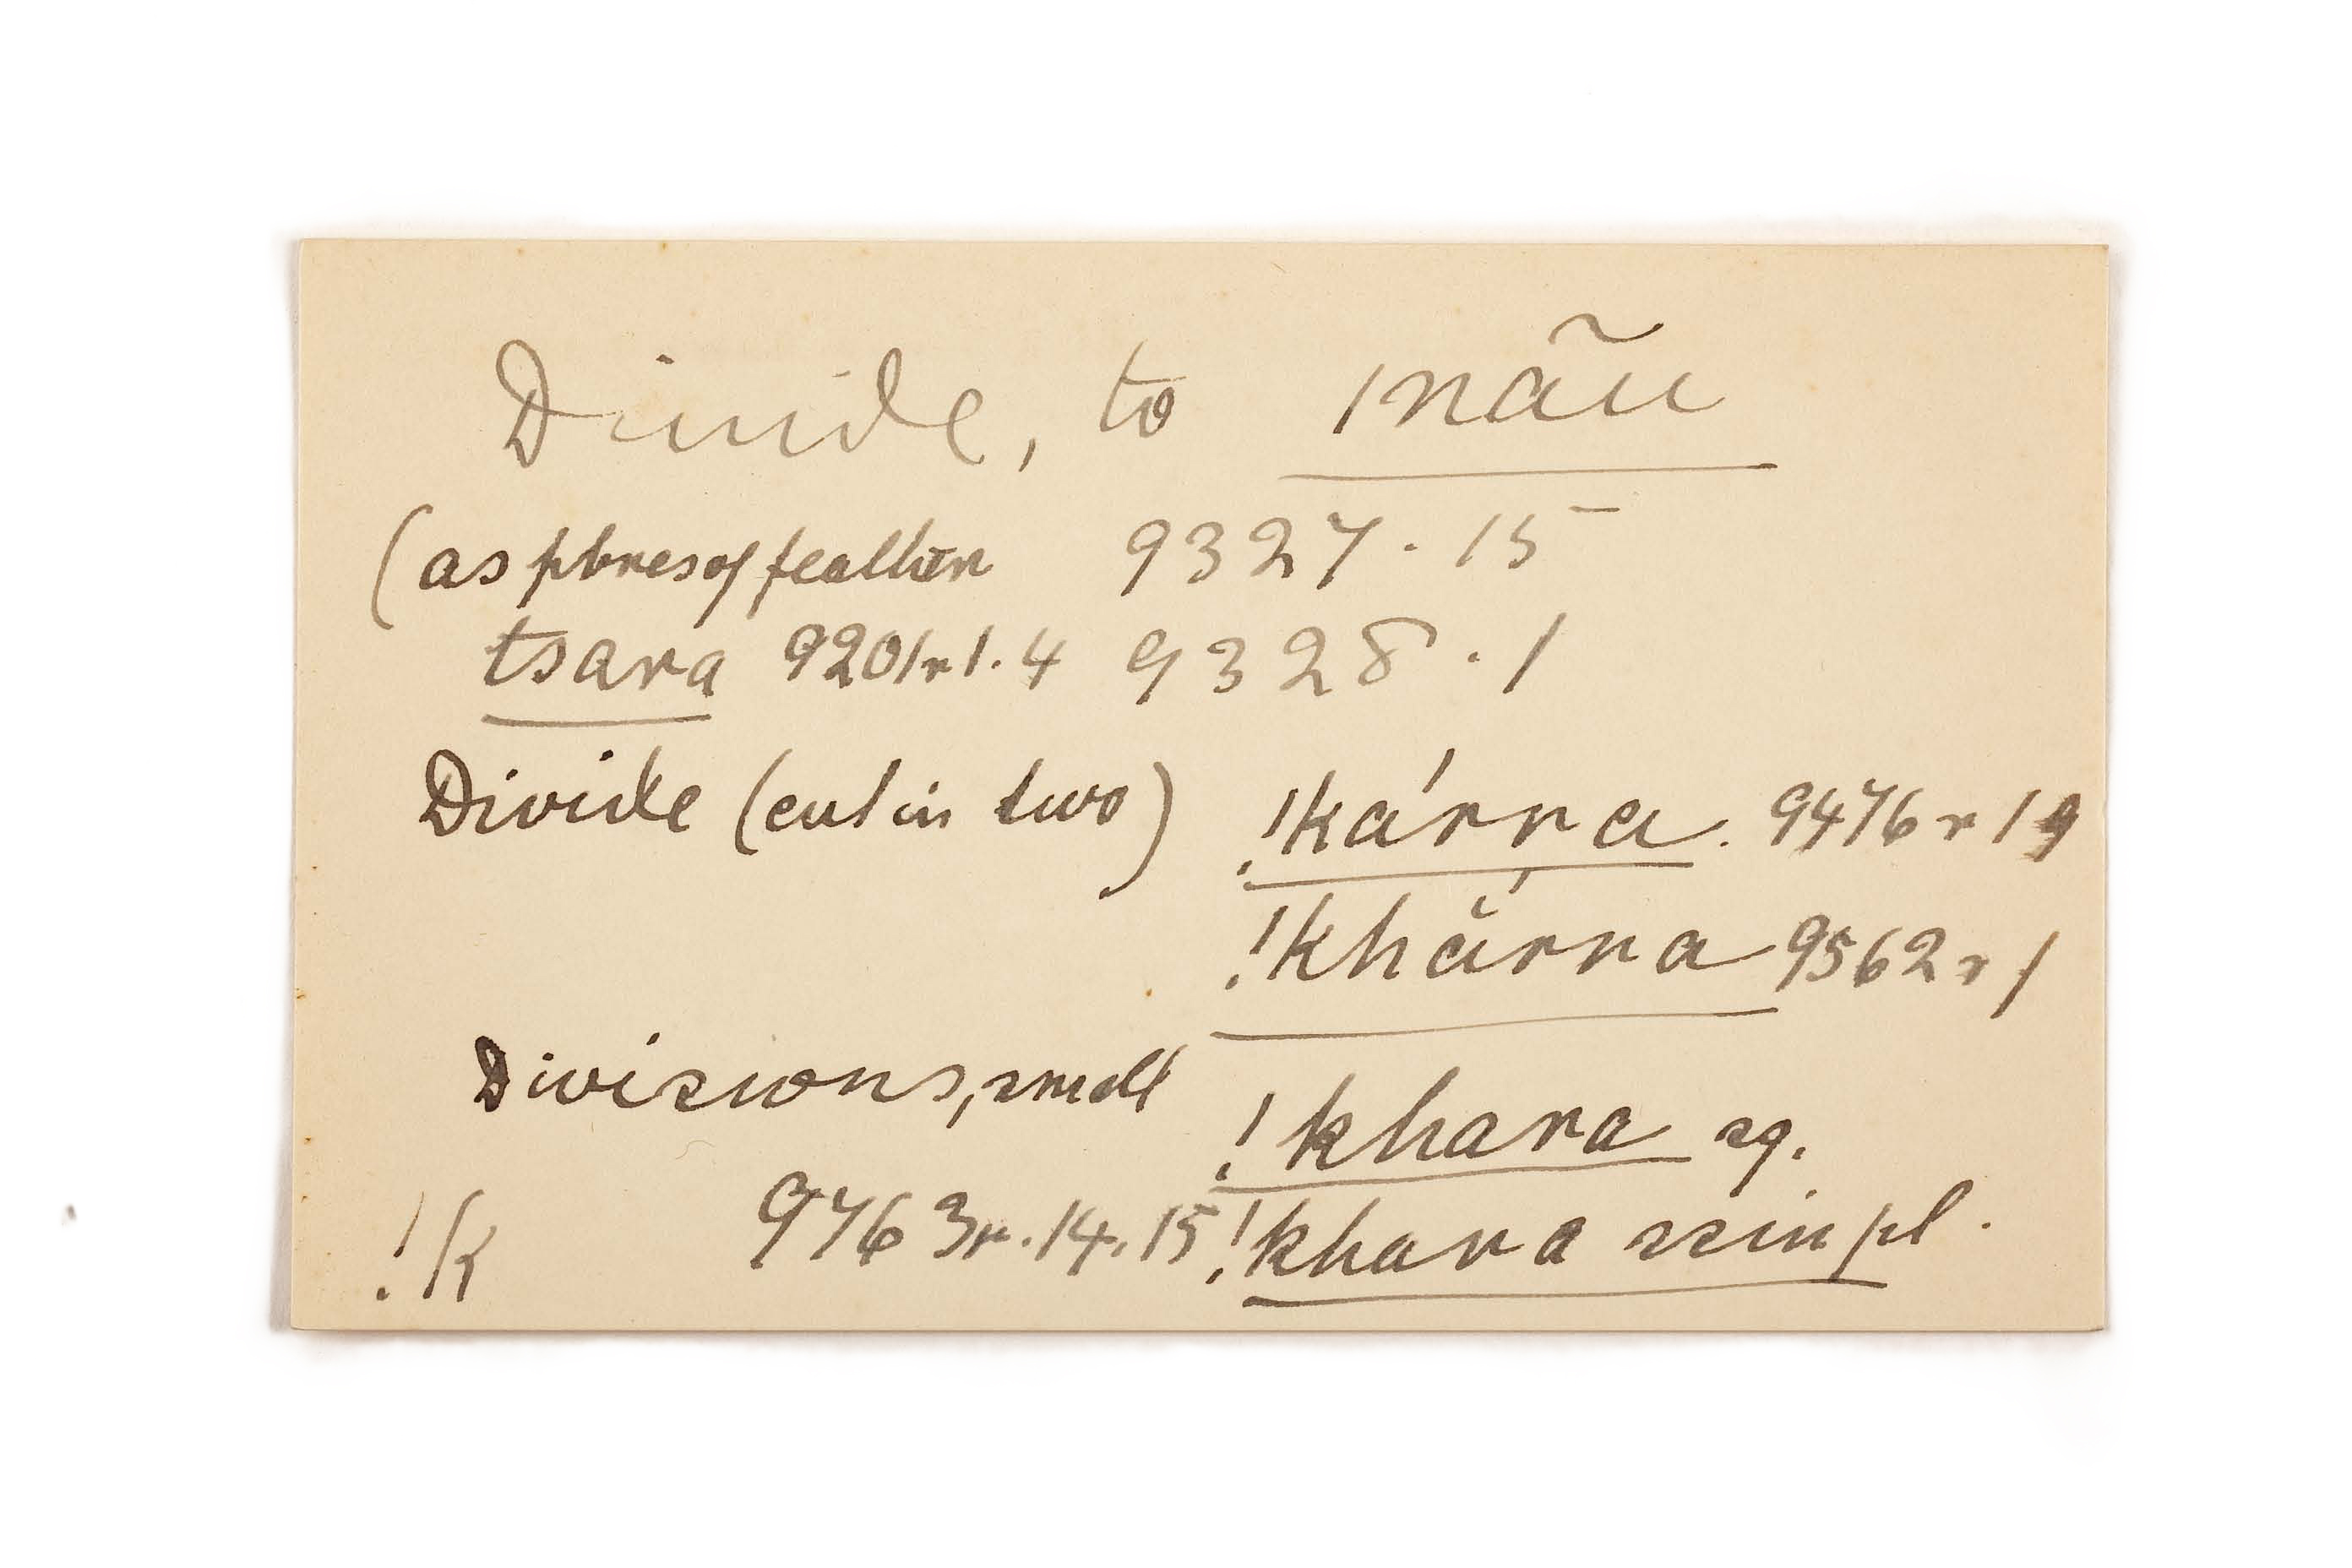 Divide, to /nãu
(as pbres of feather 9327.15
tsara 9201r1.4 9328.1
Divide (cut in two) !kárra. 9476r19
!khărra 9562r1
Divisions, small !khara sg.
!k 9763r.14.15 !khara ssin pl.